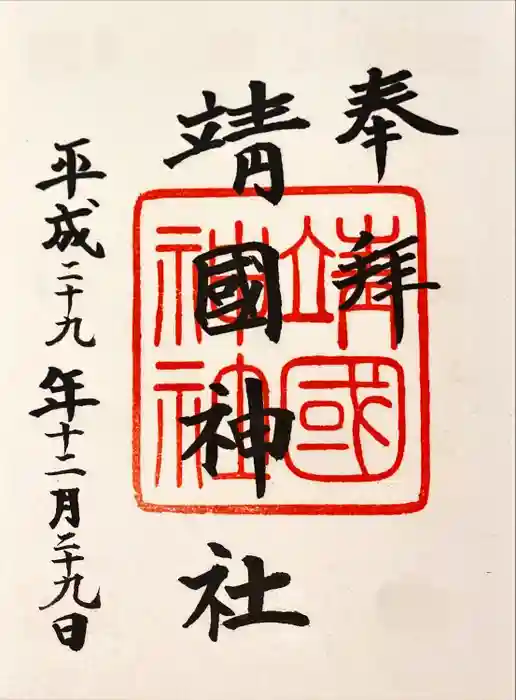 奉拝
靖國神社
靖國
神社
平成二十九年十二月二十九日